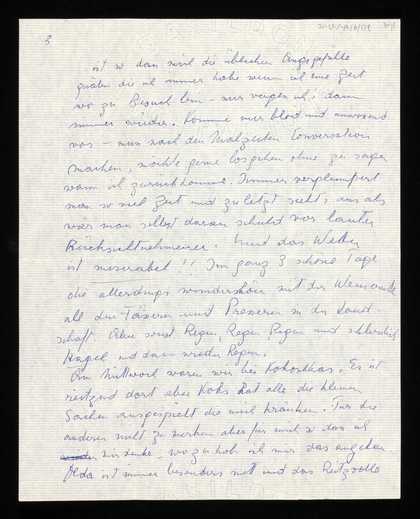 3
ist so dann sind die üblichen Angstgefühle
die ich immer habe wenn ich eine Zeit
wo zu Besuch bin - nur vergess ich's dann
immer wieder. Komme mir blöd und
vor - muss nach den Mahlzeiten Conversation
machen, möchte gerne losgehen ohne zu sagen
wann ich zurückkomme. Immer verplempert
man so viel Zeit und zuletzt sieht's aus als
wär man selbst daran schuld vor lauter
Rücksichtnehmerei. Und das Wetter
ist miserabel!! Im ganz 3 schöne Tage
die allerdings wunderschön mit der
all den Täsern und Prozessen in der Land-
schaft. Aber sonst Regen, Regen, Regen und schliesslich
Hagel und dann wieder Regen.
Am Mittwoch waren wir bei Kokoschkas. Es ist
reizend dort aber Koks hat alle die kleinen
Sachen ausgespielt die mich kränken. Für die
anderen nicht zu merken aber für mich so dass ich
mir denke - wozu hab ich mir das angetan
Olda ist immer besonders nett und das Reizvolle